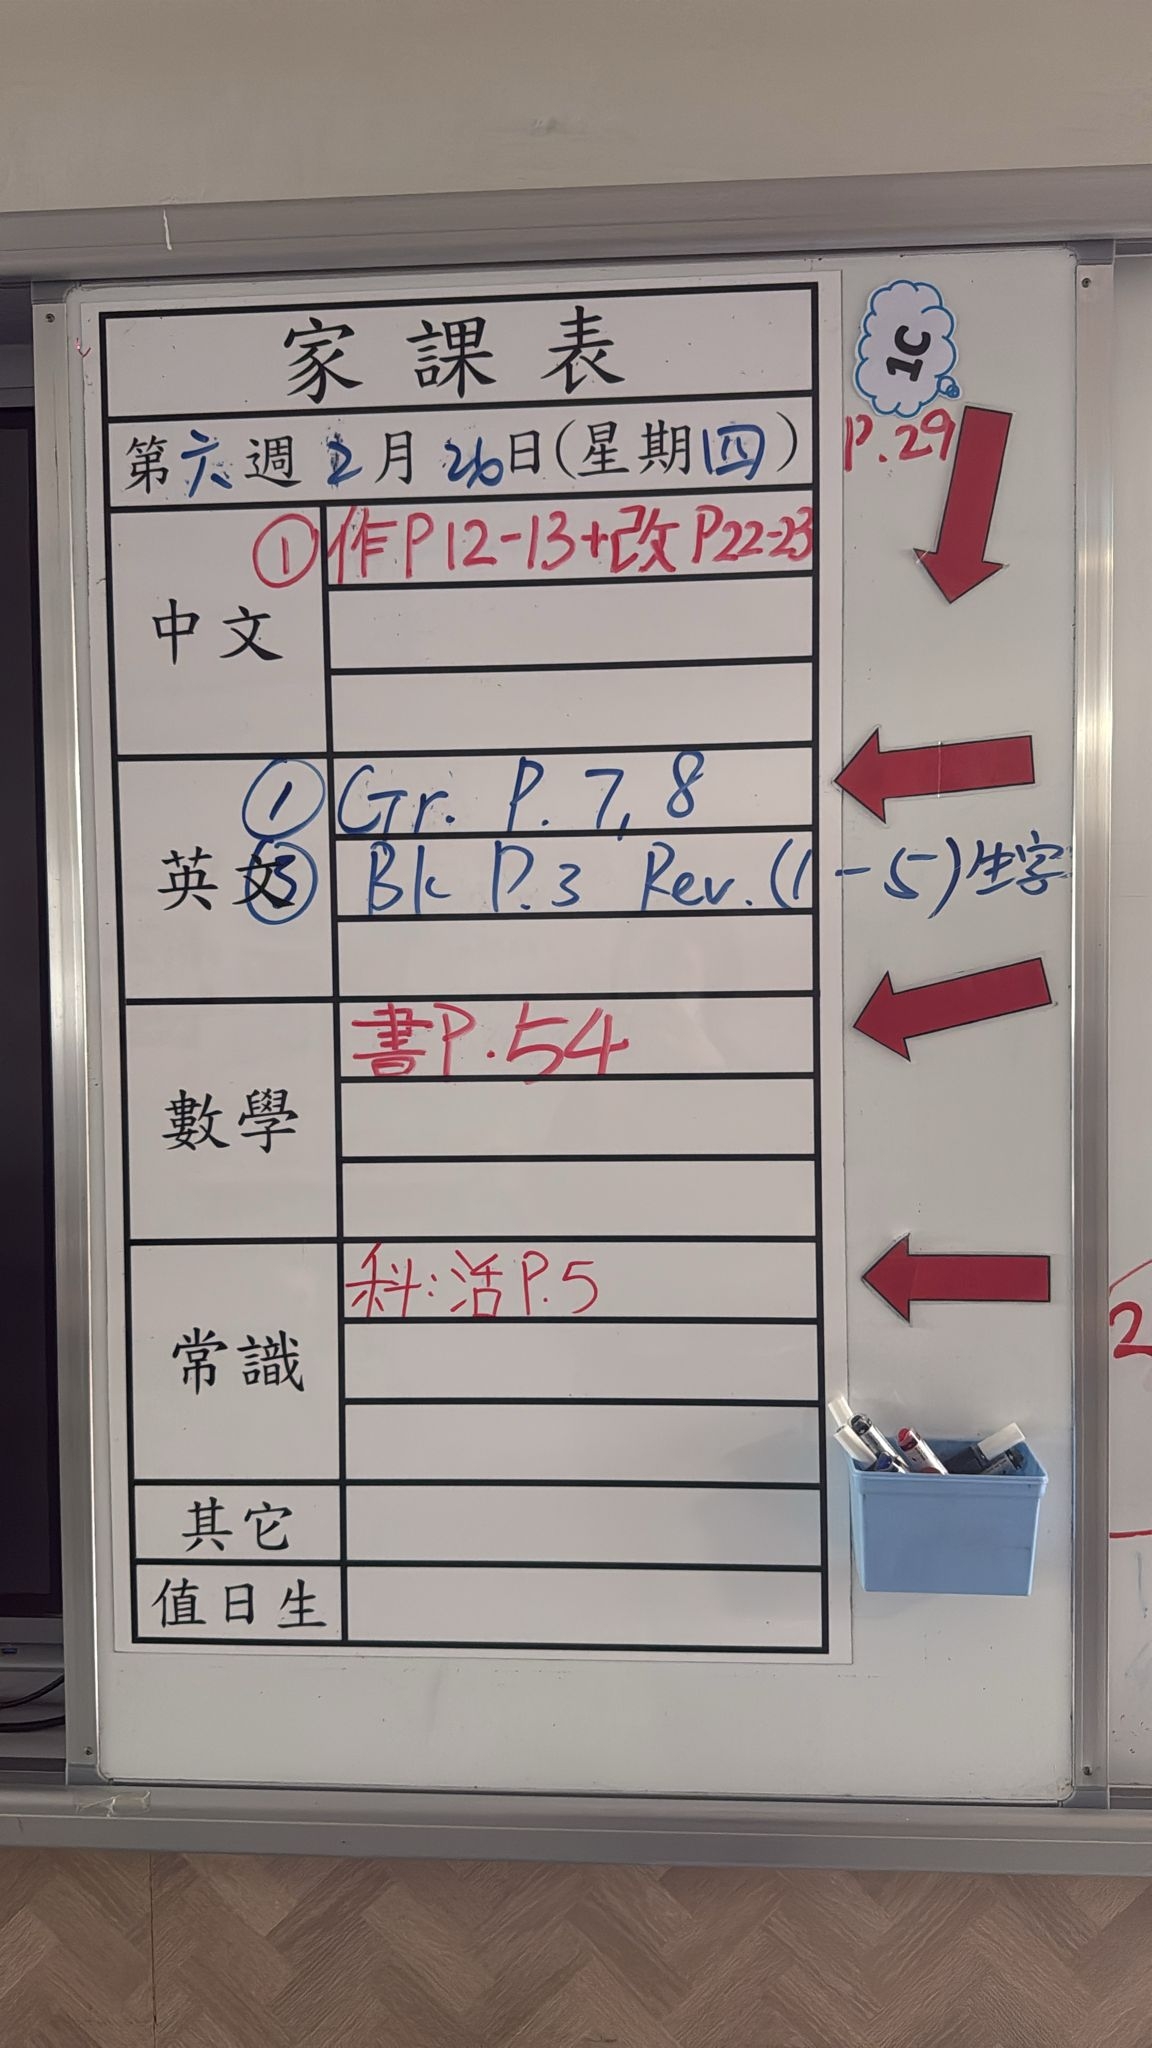 家課表
1C
第六週 2月26日(星期四)
P.29
中文
① 作P12-13+改P22-23
英文
① Gr. P. 7, 8
③ Bk P.3 Rev. (1-5)生字
數學
書P.54
常識
科:活P.5
其它
值日生
2